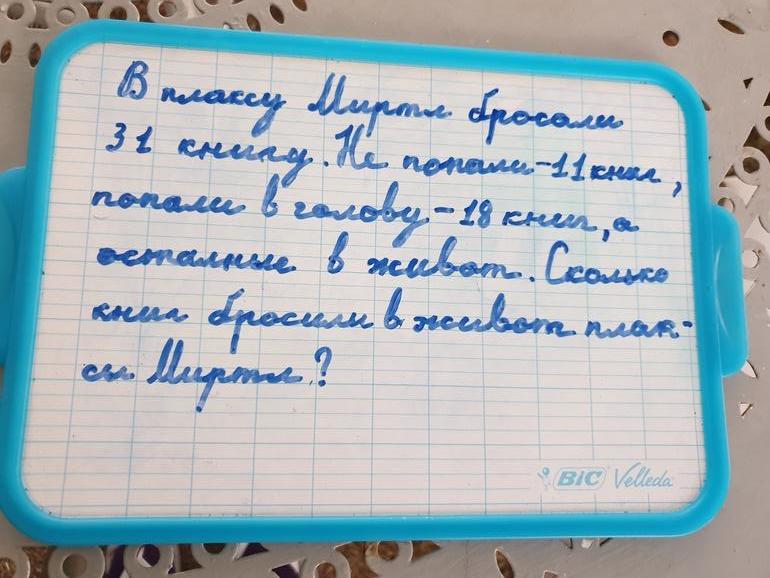 В плаксу Миртл бросали
31 книгу. Не попали-11 книг,
попали в голову-18 книг, а
осталные в живот. Сколько
книг бросили в живот плак-
сы Миртл?
BIC Velleda